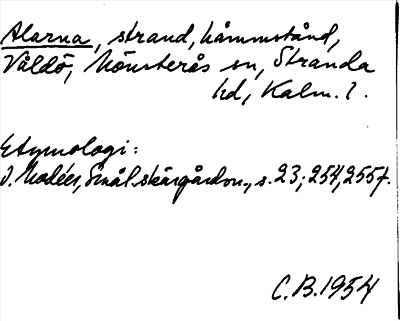 Alarna, strand, hämmstånd,
Våldö, Mönsterås sn, Stranda
hd, Kalm. l.
Etymologi:
J. Modéer, Smål. skärgårdsn., s. 23; 254, 255 f.
C.B. 1954